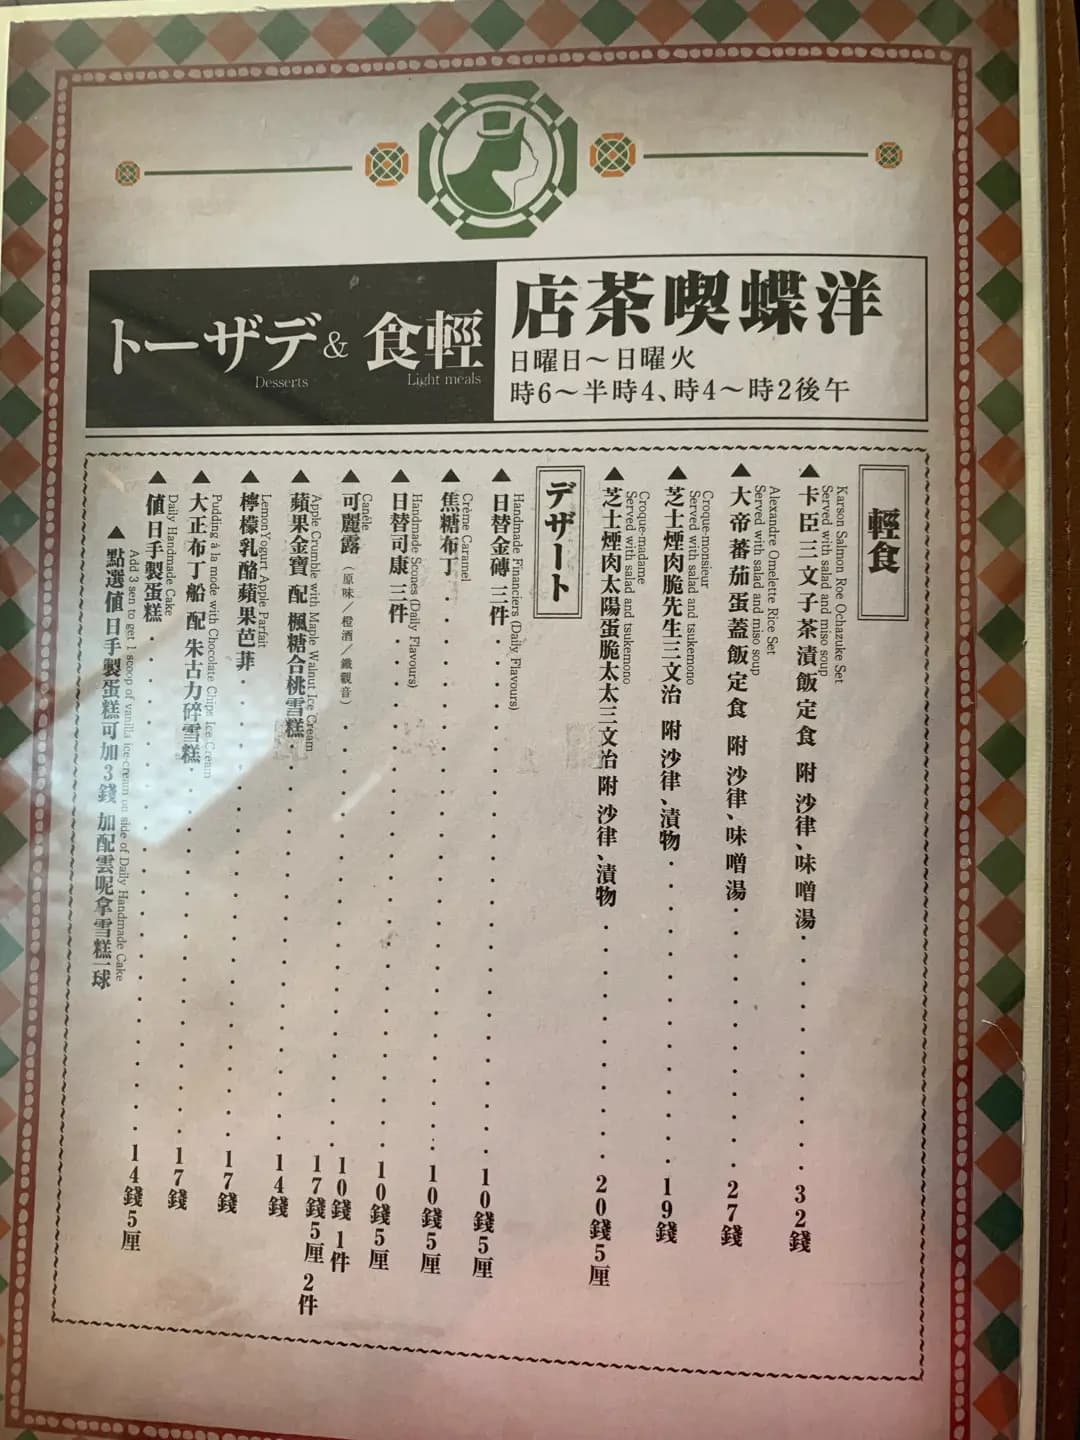 店茶喫蝶洋
日曜日～日曜火
時6～半時4、時4～時2後午
トーザデ & 食輕
Desserts
Light meals
輕食
▲卡臣三文子茶漬飯定食 附 沙律、味噌湯 32錢
Karson Salmon Roe Ochazuke Set
Served with salad and miso soup
▲大帝蕃茄蛋蓋飯定食 附 沙律、味噌湯 27錢
Alexandre Omelette Rice Set
Served with salad and miso soup
▲芝士煙肉脆先生三文治 附 沙律、漬物 19錢
Croque-monsieur
Served with salad and tsukemono
▲芝士煙肉太陽蛋脆太太三文治 附 沙律、漬物 20錢5厘
Croque-madame
Served with salad and tsukemono
デザート
▲日替金磚 三件 10錢5厘
Handmade Financiers (Daily Flavours)
▲焦糖布丁 10錢5厘
Crème Caramel
▲日替司康 三件 10錢5厘
Handmade Scones (Daily Flavours)
▲可麗露（原味／橙酒／鐵觀音） 10錢 1件
17錢5厘 2件
Canéle
▲蘋果金寶 配 楓糖合桃雪糕 14錢
Apple Crumble with Maple Walnut Ice Cream
▲檸檬乳酪蘋果芭菲 17錢
Lemon Yogurt Apple Parfait
▲大正布丁船 配 朱古力碎雪糕 17錢
Pudding à la mode with Chocolate Chips Ice Cream
▲値日手製蛋糕 14錢5厘
Daily Handmade Cake
▲點選値日手製蛋糕可加3錢 加配雲呢拿雪糕一球
Add 3 sen to get 1 scoop of vanilla ice-cream on side of Daily Handmade Cake